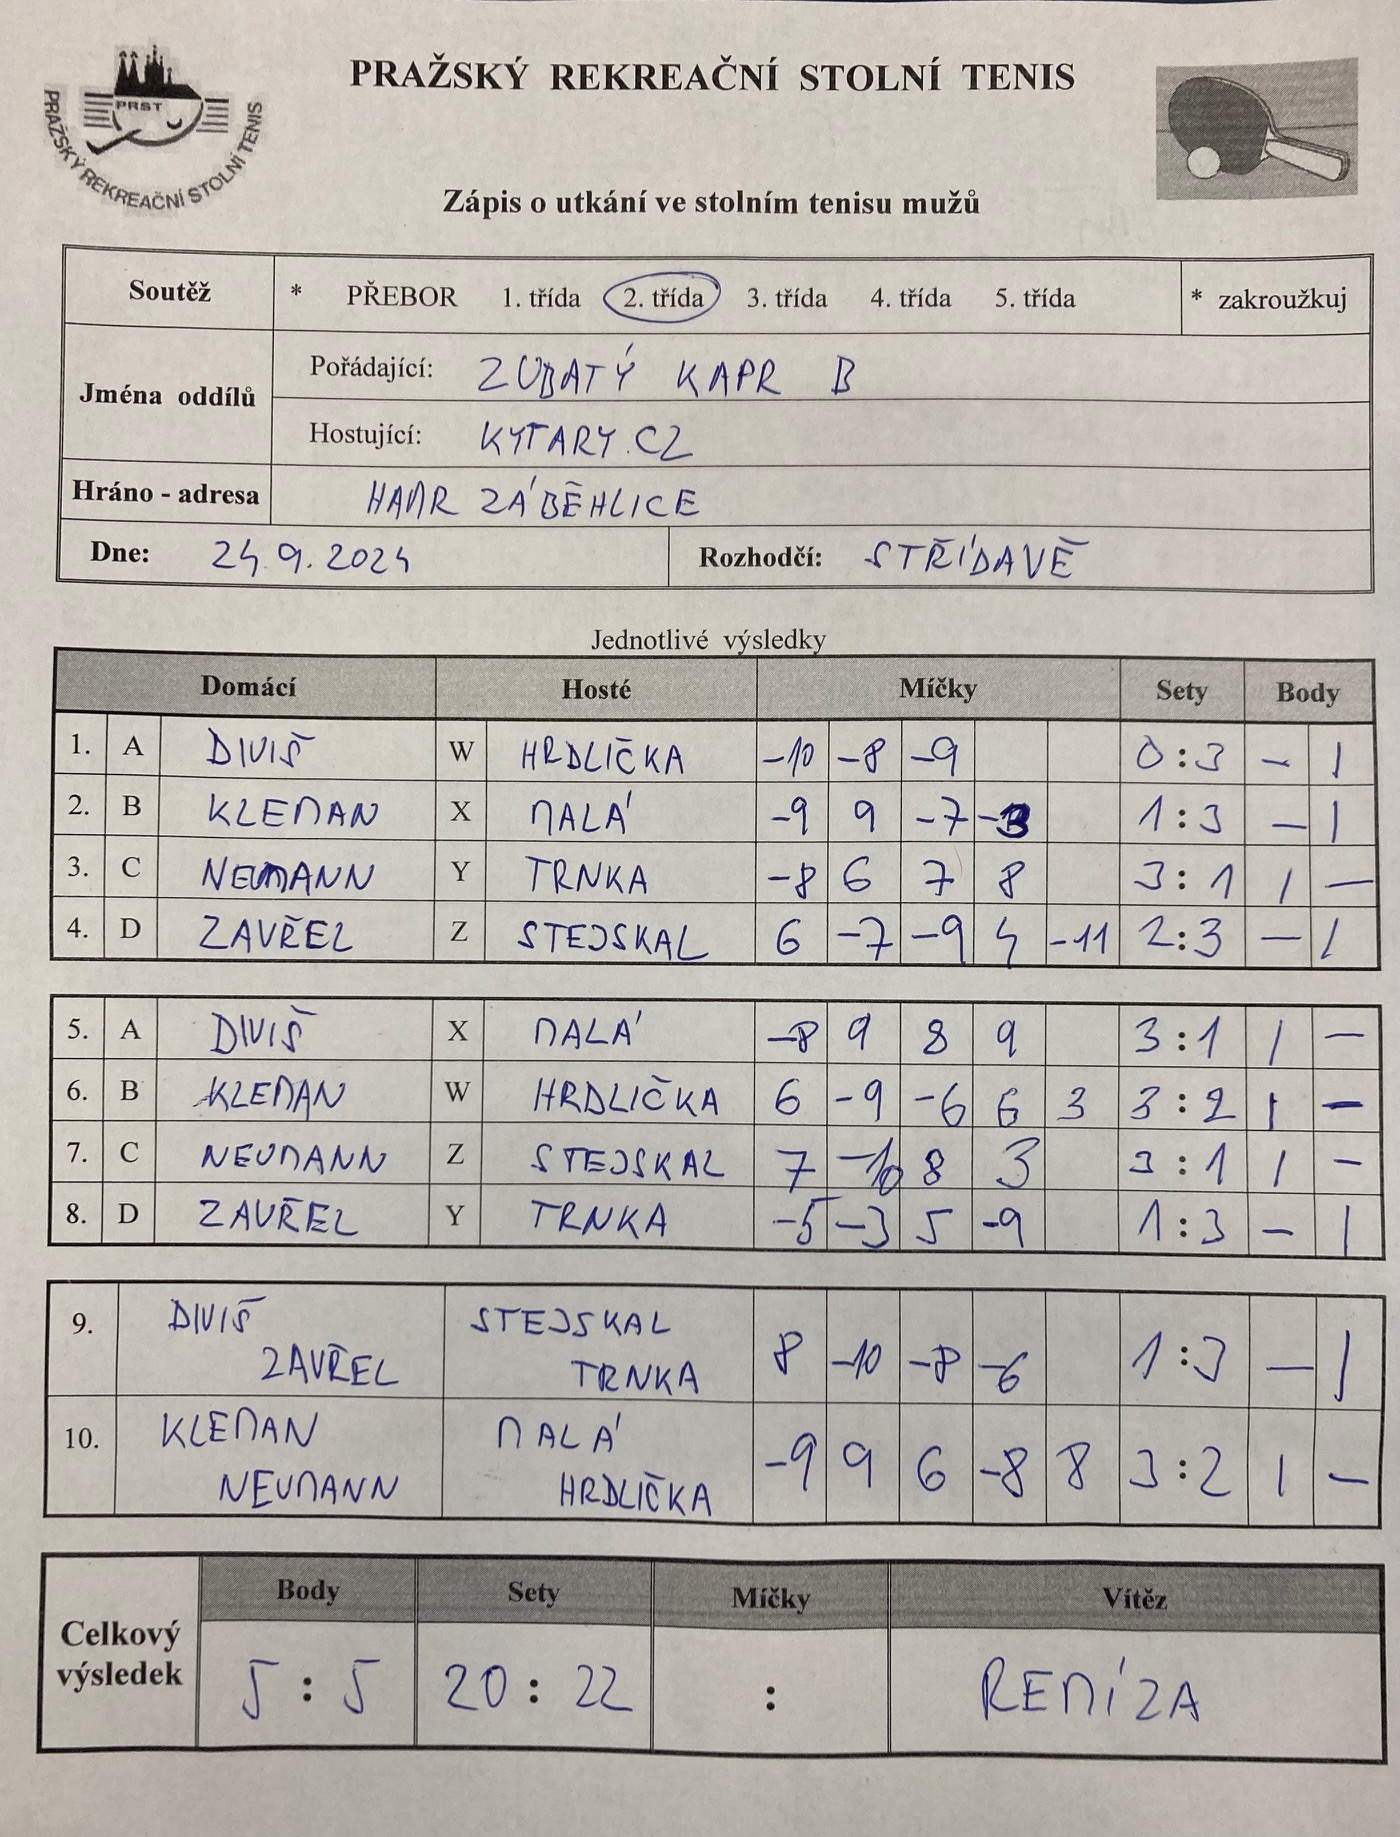 PRAŽSKÝ REKREAČNÍ STOLNÍ TENIS
PRST
PRAŽSKÝ REKREAČNÍ STOLNÍ TENIS
Zápis o utkání ve stolním tenisu mužů
Soutěž * PŘEBOR 1. třída 2. třída 3. třída 4. třída 5. třída * zakroužkuj
Jména oddílů
Pořádající: ZUBATÝ KAPR B
Hostující: KYTARY.CZ
Hráno - adresa HAMR ZÁBĚHLICE
Dne: 24.9.2024 Rozhodčí: STŘÍDAVĚ
Jednotlivé výsledky
Domácí Hosté Míčky Sety Body
1. A DIVIŠ W HRDLIČKA -10 -8 -9 0:3 - 1
2. B KLEMAN X MALÁ -9 9 -7 1:3 - 1
3. C NEUMANN Y TRNKA -8 6 7 8 3:1 1 -
4. D ZAVŘEL Z STEJSKAL 6 -7 -9 4 -11 2:3 - 1
5. A DIVIŠ X MALÁ -8 9 8 9 3:1 1 -
6. B KLEMAN W HRDLIČKA 6 -9 -6 6 3 3:2 1 -
7. C NEUMANN Z STEJSKAL 7 -10 8 3 3:1 1 -
8. D ZAVŘEL Y TRNKA -5 -3 5 -9 1:3 - 1
9. DIVIŠ STEJSKAL
ZAVŘEL TRNKA 8 -10 -8 -6 1:3 - 1
10. KLEMAN MALÁ
NEUMANN HRDLIČKA -9 9 6 -8 8 3:2 1 -
Celkový výsledek
Body Sety Míčky Vítěz
5:5 20:22 : REMÍZA